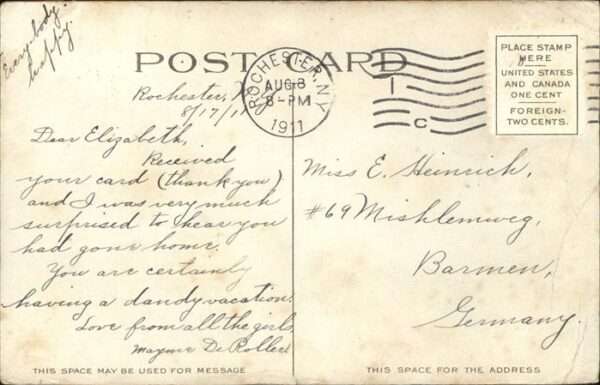 Everybody
happy.
POST CARD
PLACE STAMP
HERE
UNITED STATES
AND CANADA
ONE CENT
FOREIGN-
TWO CENTS.
ROCHESTER, N.Y.
AUG 8
8-PM
1911
1
C
Rochester, N.
8/17/11
Dear Elizabeth,
Received
your card (thank you)
and I was very much
surprised to hear you
had gone home.
You are certainly
having a dandy vacation.
Love from all the girls,
Mayme De Roller
Miss E. Heinrich,
#69 Mishlemweg,
Barmen,
Germany.
THIS SPACE MAY BE USED FOR MESSAGE
THIS SPACE FOR THE ADDRESS